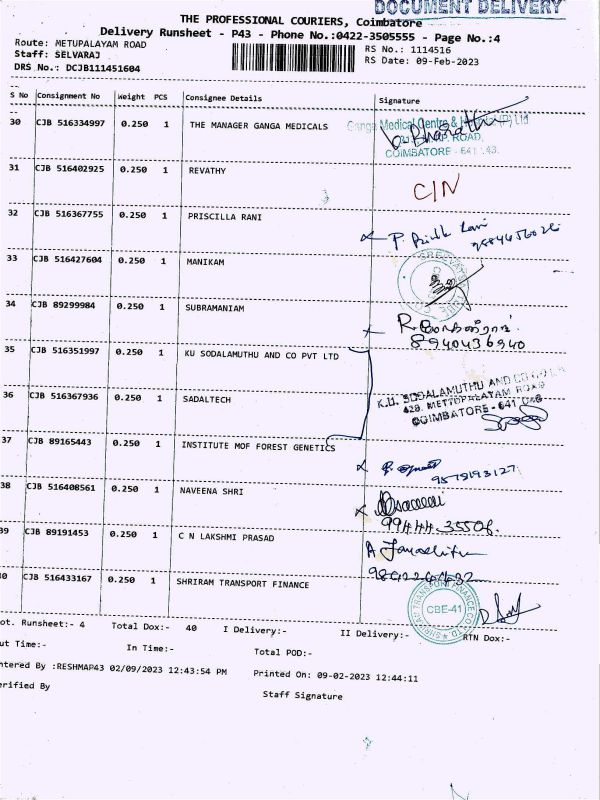 DOCUMENT DELIVERY
THE PROFESSIONAL COURIERS, Coimbatore
Delivery Runsheet - P43 - Phone No.:0422-3505555 - Page No.:4
Route: METUPALAYAM ROAD
RS No.: 1114516
Staff: SELVARAJ
RS Date: 09-Feb-2023
DRS No.: DCJB111451604
S No Consignment No Weight PCS Consignee Details Signature
30 CJB 516334997 0.250 1 THE MANAGER GANGA MEDICALS
Ganga Medical Centre & (P) Ltd
ROAD,
COIMBATORE - 641 043.
31 CJB 516402925 0.250 1 REVATHY
C/N
32 CJB 516367755 0.250 1 PRISCILLA RANI
P. Rani
33 CJB 516427604 0.250 1 MANIKAM
34 CJB 89299984 0.250 1 SUBRAMANIAM
8940436940
35 CJB 516351997 0.250 1 KU SODALAMUTHU AND CO PVT LTD
36 CJB 516367936 0.250 1 SADALTECH
K.U. SODALAMUTHU AND CO
428, METTUPALAYAM ROAD
COIMBATORE - 641 043
37 CJB 89165443 0.250 1 INSTITUTE MOF FOREST GENETICS
9579193127
38 CJB 516408561 0.250 1 NAVEENA SHRI
99444 35506
39 CJB 89191453 0.250 1 C N LAKSHMI PRASAD
A
40 CJB 516433167 0.250 1 SHRIRAM TRANSPORT FINANCE
SHRIRAM TRANSPORT FINANCE CO LTD
CBE-41
ot. Runsheet:- 4 Total Dox:- 40 I Delivery:- II Delivery:- RTN Dox:-
ut Time:- In Time:- Total POD:-
ntered By :RESHMAP43 02/09/2023 12:43:54 PM Printed On: 09-02-2023 12:44:11
erified By Staff Signature